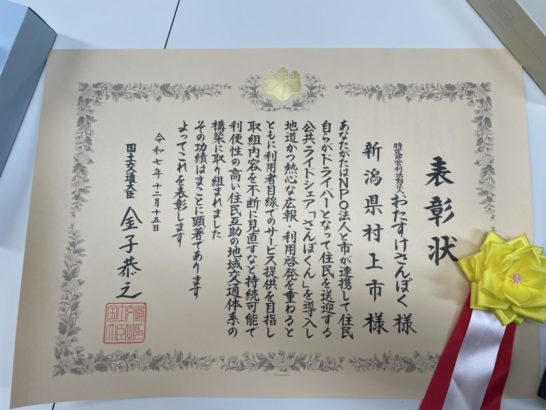 表彰状
特定非営利活動法人 おたすけさんぽく 様
新潟県村上市 様
あなたがたはNPO法人と市が連携して住民
自らがドライバーとなって住民を送迎する
公共ライドシェア「さんぽくん」を導入し
地道かつ熱心な広報・利用啓発を重ねると
ともに利用者目線でのサービス提供を目指し
取組内容を不断に見直すなど持続可能で
利便性の高い住民互助の地域交通体系の
構築に取り組まれました
その功績はまことに顕著であります
よってこれを表彰します
令和七年十二月十五日
国土交通大臣 金子恭之